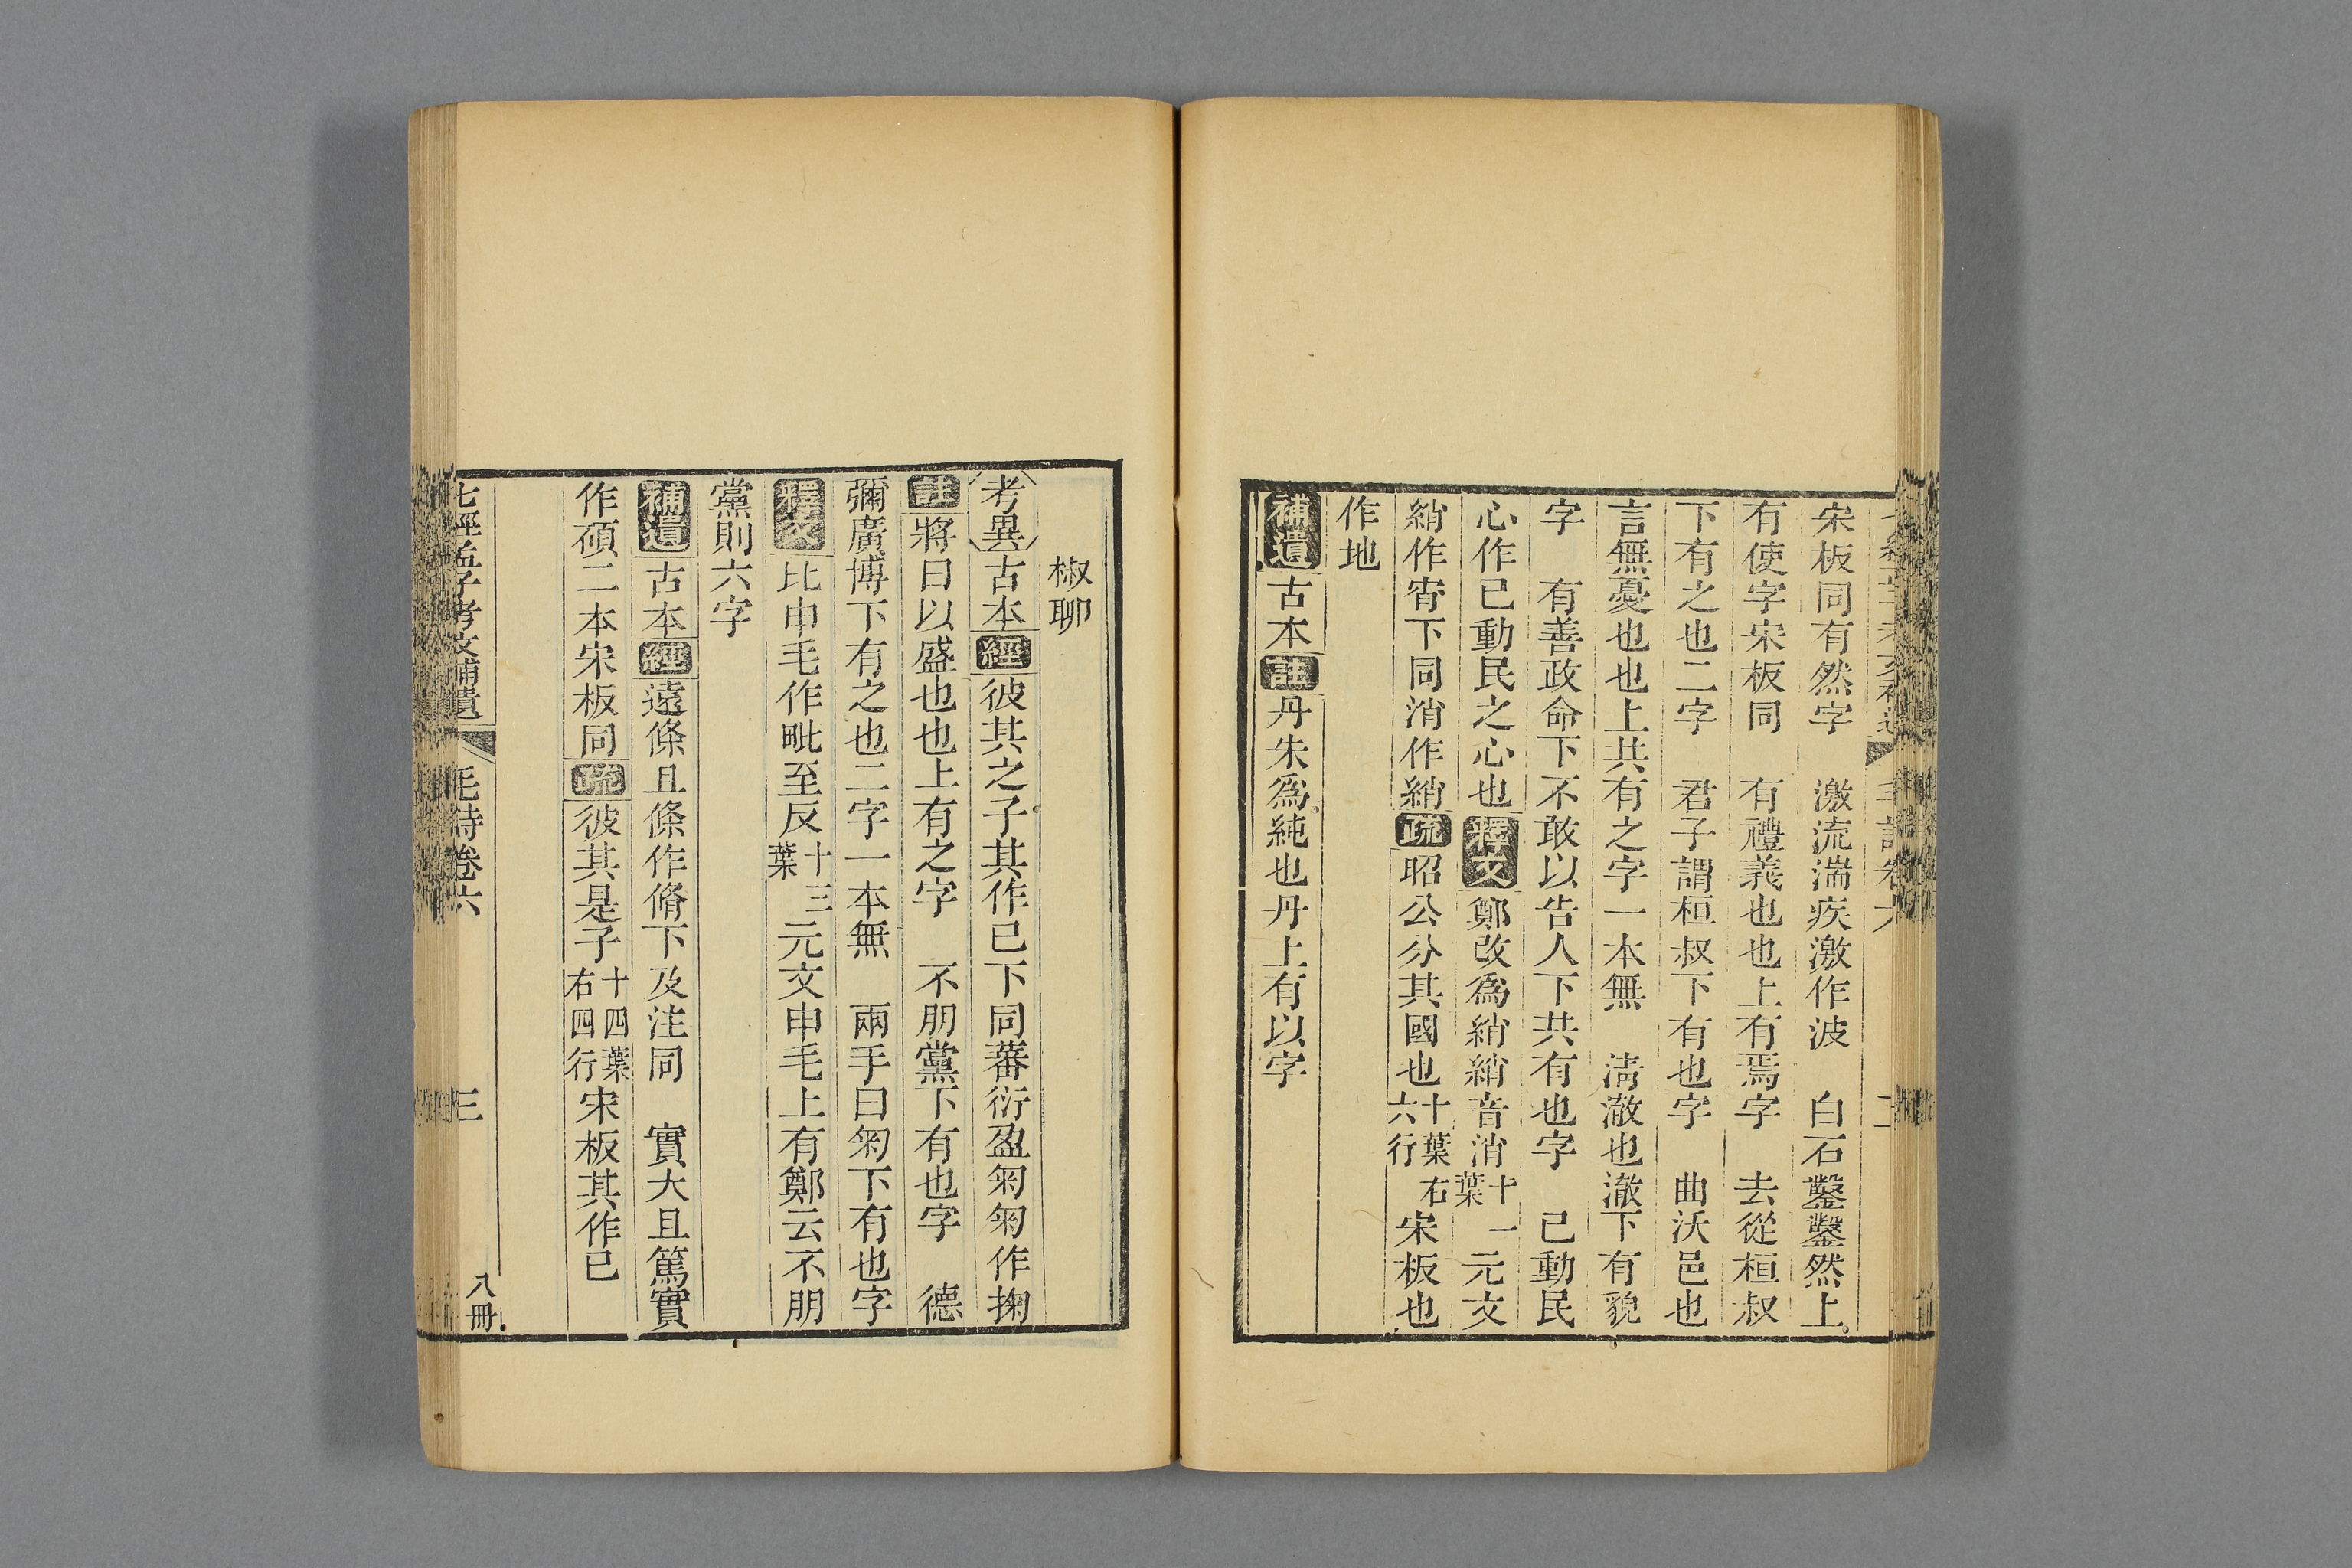 宋板同有然字　激流湍疾激作波　白石鑿鑿然上
有使字宋板同　有禮義也也上有焉字　去從桓叔
下有之也二字　君子謂桓叔下有也字　曲沃邑也
言無憂也也上共有之字一本無　淸澈也澈下有貌
字　有善政命下不敢以告人下共有也字　已動民
心作已動民之心也釋文鄭改爲綃綃音消十一葉元文
綃作宵下同消作綃疏昭公分其國也十葉右六行宋板也
作地
補遺古本註丹朱爲純也丹上有以字
椒聊
考異古本經彼其之子其作已下同蕃衍盈匊匊作掬
註將日以盛也也上有之字　不朋黨下有也字　德
彌廣博下有之也二字一本無　兩手曰匊下有也字
釋文比申毛作毗至反十三葉元文申毛上有鄭云不朋
黨則六字
補遺古本經遠條且條作脩下及注同　實大且篤實
作碩二本宋板同疏彼其是子十四葉右四行宋板其作已
七經孟子考文補遺　毛詩卷六　三　八冊